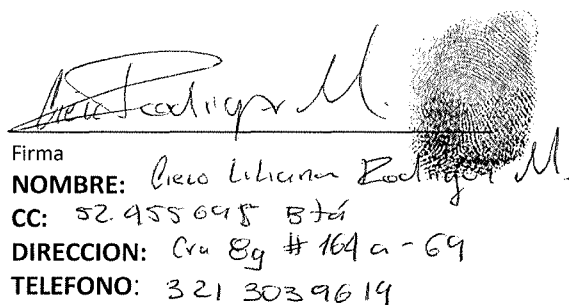 Rodriguez M.
Firma
NOMBRE: Cielo Liliana Rodriguez M.
CC: 52.955695 Btá
DIRECCION: Cra 8g # 164 a - 69
TELEFONO: 321 3039619